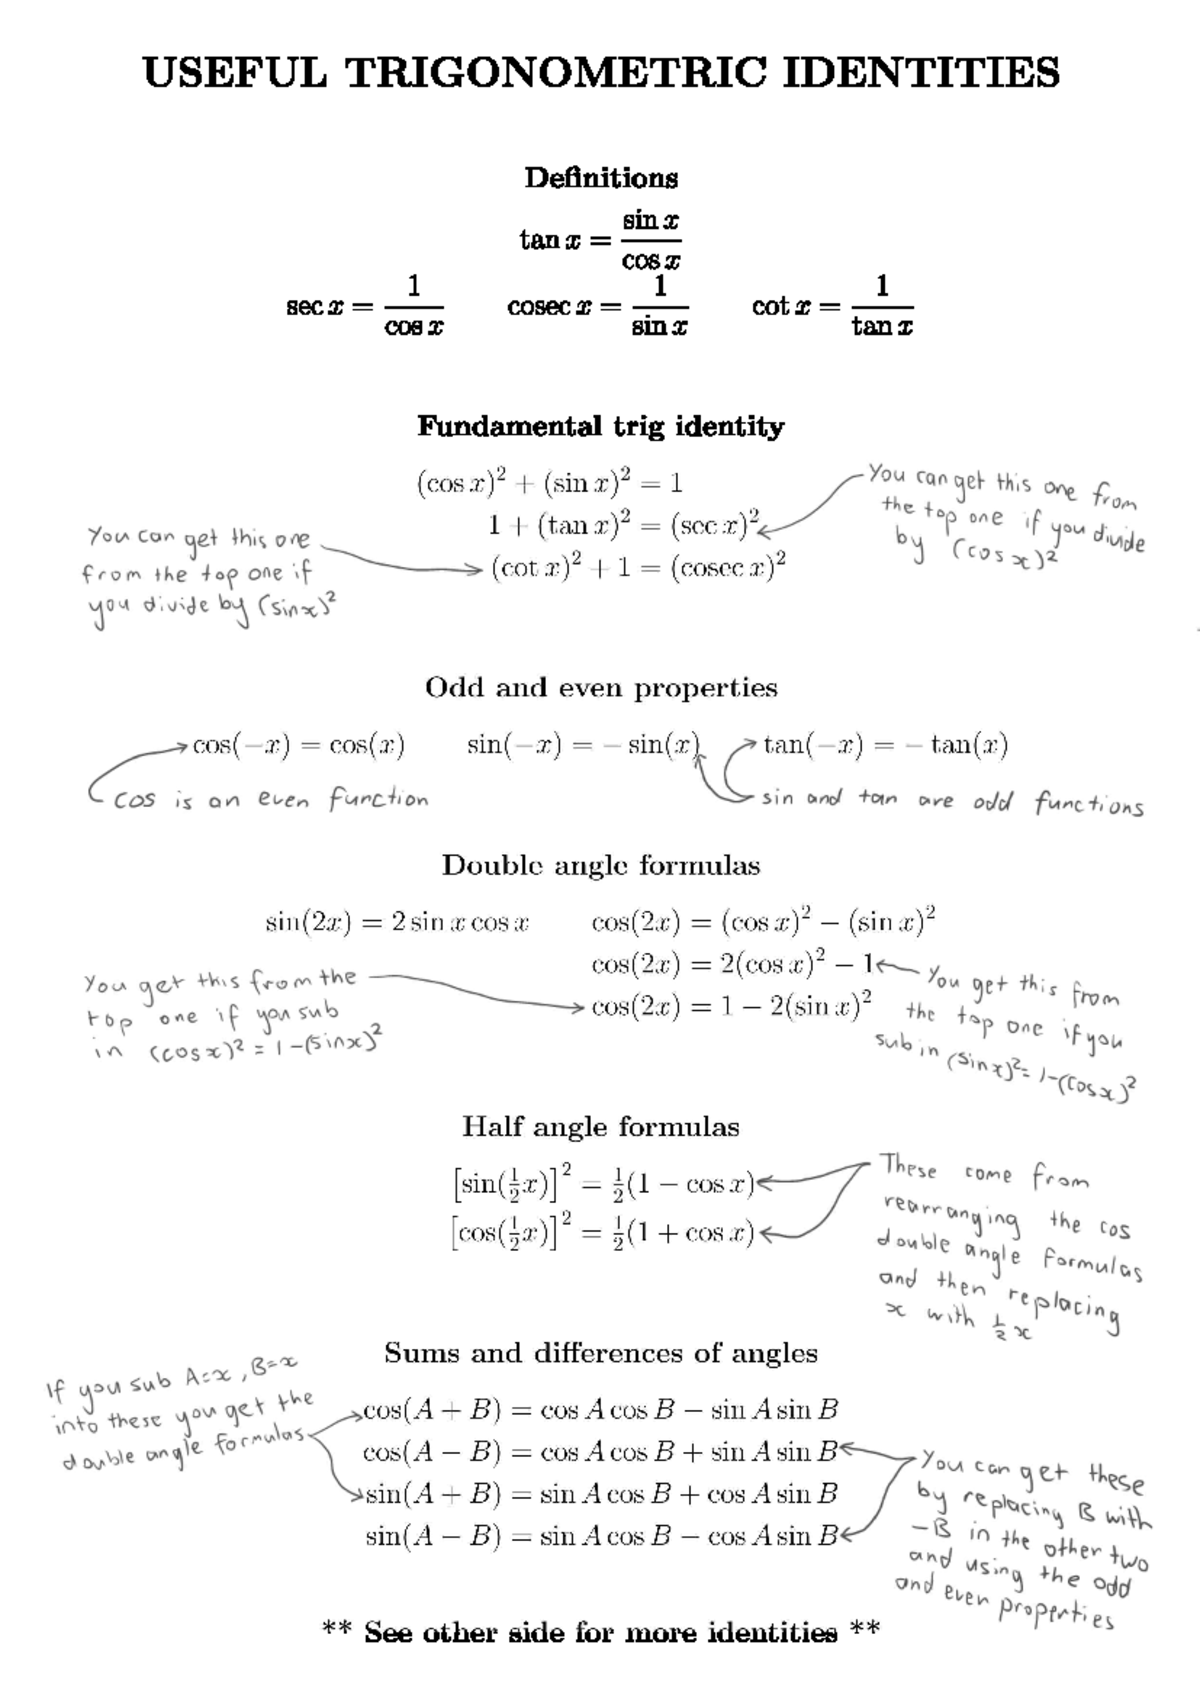 USEFUL TRIGONOMETRIC IDENTITIES
Definitions
tan x = sin x / cos x
sec x = 1 / cos x    cosec x = 1 / sin x    cot x = 1 / tan x
Fundamental trig identity
(cos x)² + (sin x)² = 1
1 + (tan x)² = (sec x)²
(cot x)² + 1 = (cosec x)²
You can get this one from
the top one if you divide
by (cos x)²
You can get this one
from the top one if
you divide by (sin x)²
Odd and even properties
cos(−x) = cos(x)    sin(−x) = − sin(x)    tan(−x) = − tan(x)
cos is an even function
sin and tan are odd functions
Double angle formulas
sin(2x) = 2 sin x cos x    cos(2x) = (cos x)² − (sin x)²
cos(2x) = 2(cos x)² − 1
cos(2x) = 1 − 2(sin x)²
You get this from the
top one if you sub
in (cos x)² = 1 − (sin x)²
You get this from
the top one if you
sub in (sin x)² = 1 − (cos x)²
Half angle formulas
[sin(½x)]² = ½(1 − cos x)
[cos(½x)]² = ½(1 + cos x)
These come from
rearranging the cos
double angle formulas
and then replacing
x with ½x
Sums and differences of angles
If you sub A=x, B=x
into these you get the
double angle formulas
cos(A + B) = cos A cos B − sin A sin B
cos(A − B) = cos A cos B + sin A sin B
sin(A + B) = sin A cos B + cos A sin B
sin(A − B) = sin A cos B − cos A sin B
You can get these
by replacing B with
−B in the other two
and using the odd
and even properties
** See other side for more identities **